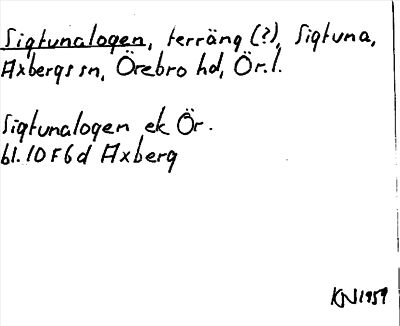 Sigtunalogen, terräng (?), Sigtuna,
Axbergs sn, Örebro hd, Ör.l.
Sigtunalogen ek Ör.
bl. 10 F 6 d Axberg
KN 1959